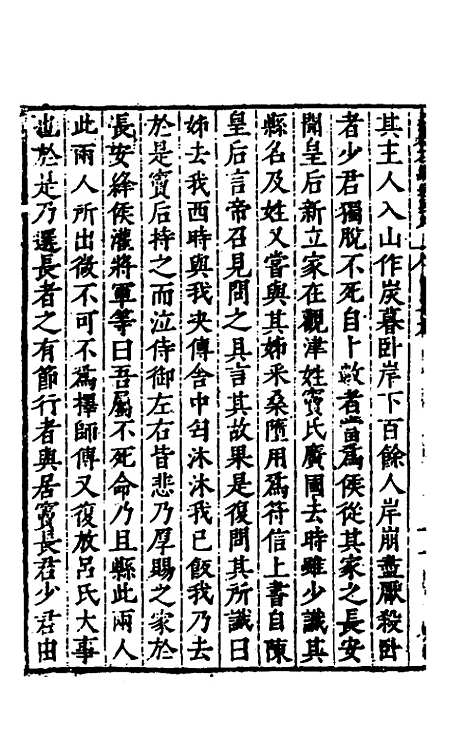 其主人入山作炭暮臥岸下百餘人岸崩盡厭殺臥
者少君獨脫不死自卜數者當爲侯從其家之長安
聞皇后新立家在觀津姓竇氏廣國去時雖少識其
縣名及姓又嘗與其姊采桑墮用爲符信上書自陳
皇后言帝召見問之具言其故果是復問其所識曰
姊去我西時與我决傳舍中匄沐沐我已飯我乃去
於是竇后持之而泣侍御左右皆悲乃厚賜之家於
長安絳侯灌將軍等曰吾屬不死命乃且縣此兩人
此兩人所出微不可不爲擇師傅又復放呂氏大事
也於是乃選長者之有節行者與居竇長君少君由